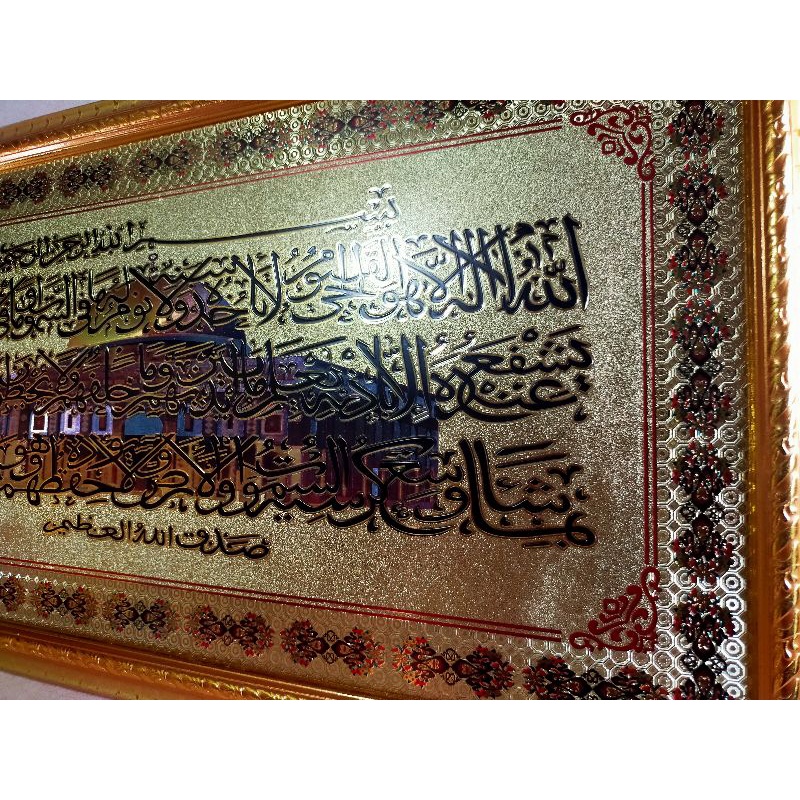 بسم الله الرحمن الرحيم
الله لا إله إلا هو الحي القيوم لا تأخذه سنة ولا نوم له ما في السموات وما في
يشفع عنده إلا بإذنه يعلم ما بين أيديهم وما خلفهم ولا يحيطون
بما شاء وسع كرسيه السموات والأرض ولا يؤده حفظهما وهو
صدق الله العظيم